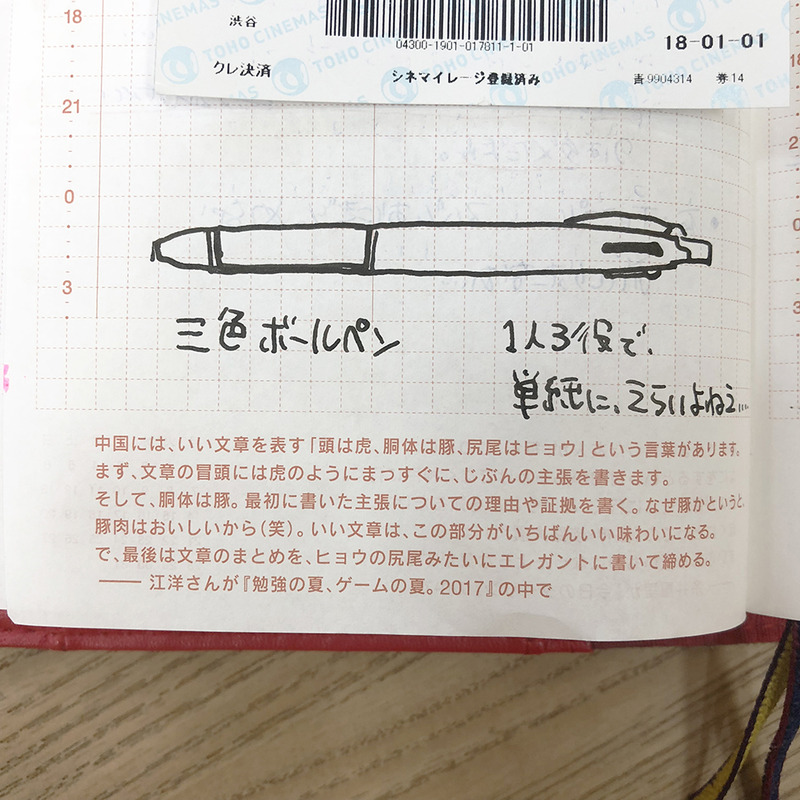 18
渋谷
04300-1901-017811-1-01
18-01-01
TOHO CINEMAS
TOHO CINEMAS
クレ決済
シネマイレージ登録済み
9904314
券14
21
0
3
三色ボールペン
1人3役で、
単純に、えらいよねえ…
中国には、いい文章を表す「頭は虎、胴体は豚、尻尾はヒョウ」という言葉があります。
まず、文章の冒頭には虎のようにまっすぐに、じぶんの主張を書きます。
そして、胴体は豚。最初に書いた主張についての理由や証拠を書く。なぜ豚かというと、
豚肉はおいしいから(笑)。いい文章は、この部分がいちばんいい味わいになる。
で、最後は文章のまとめを、ヒョウの尻尾みたいにエレガントに書いて締める。
—— 江洋さんが『勉強の夏、ゲームの夏。2017』の中で